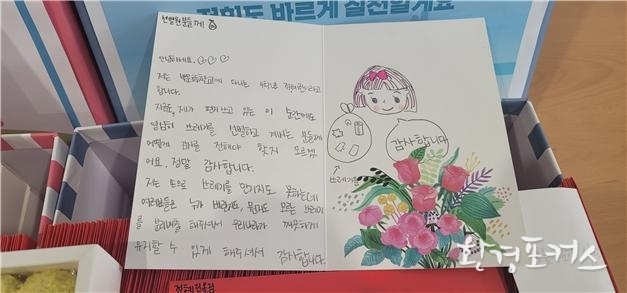 저희도 바르게 실천할게요
선별원분들께
안녕하세요.
저는 에 다니는 4학년 라고
합니다.
지금, 제가 편지 쓰고 있는 이 순간에도
열심히 쓰레기를 선별하고 계시는 분들께
어떻게 감사를 전해야 할지 모르겠
어요. 정말 감사합니다.
저는 손으로 쓰레기를 만지지도 못하는데
여러분들은 누가 버렸는지 모르는 쓰레기
를 분리배출 해주셔서 우리나라가 깨끗하게
유지할 수 있게 해주셔서 감사합니다.
감사합니다
쓰레기
환경포커스